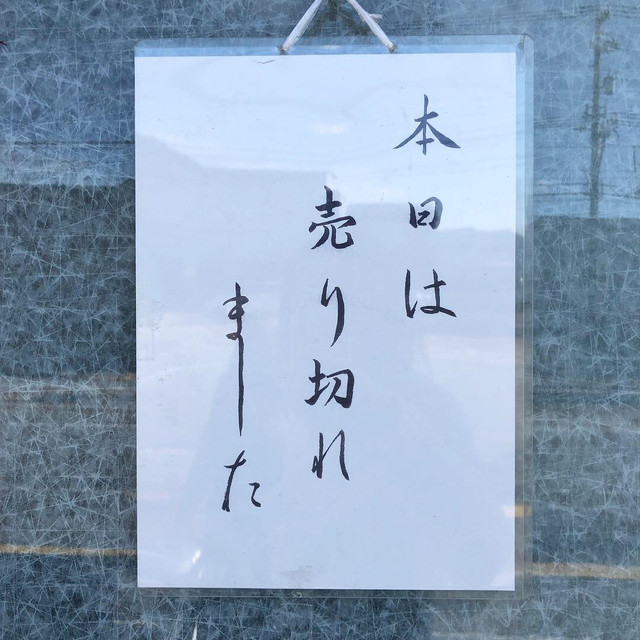 本日は
売り切れ
ました